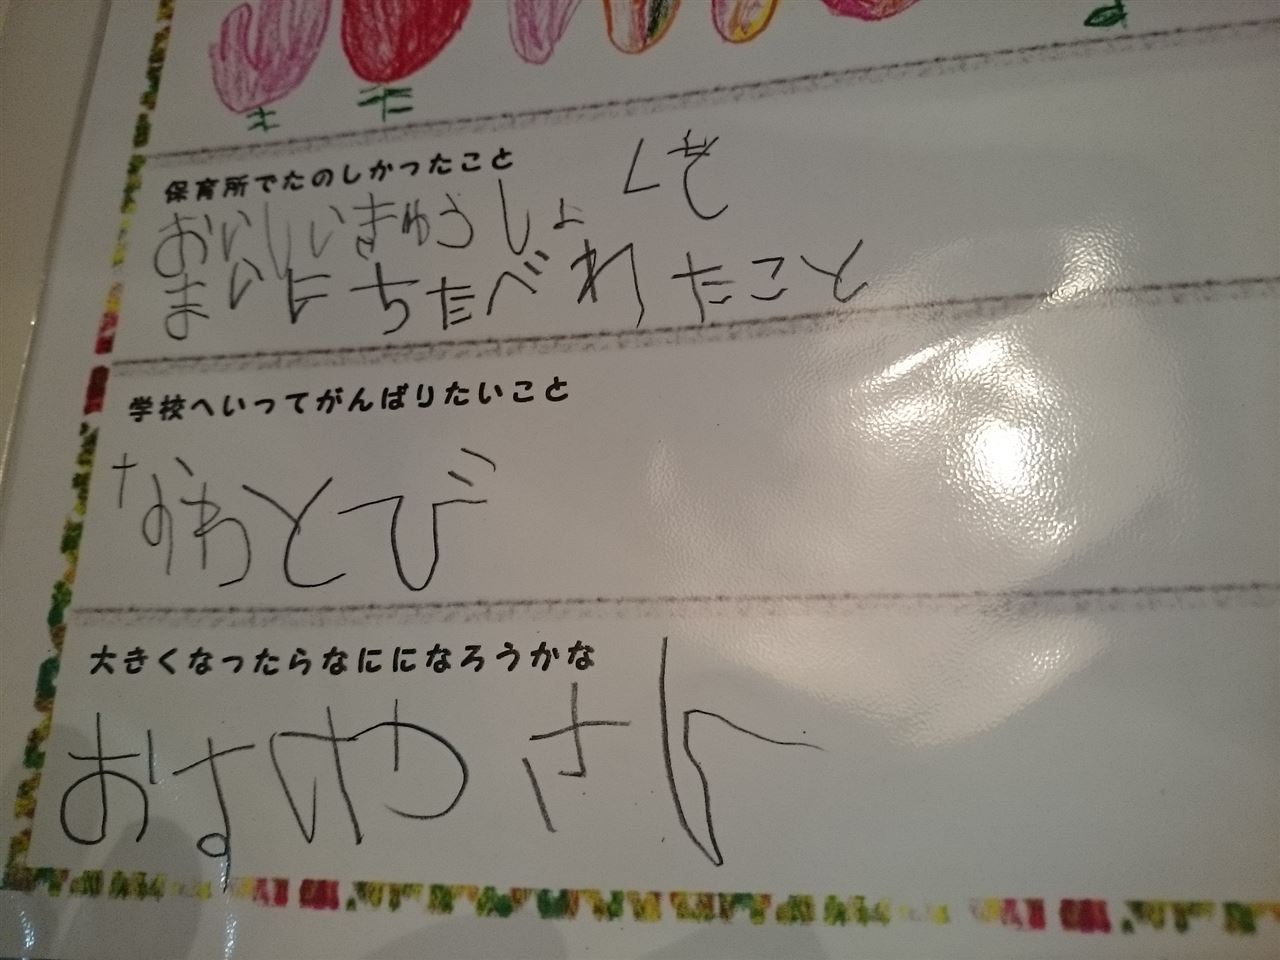 保育所でたのしかったこと
おいしいきゅうしょくを
まいにちたべれたこと
学校へいってがんばりたいこと
なわとび
大きくなったらなにになろうかな
おすしやさん